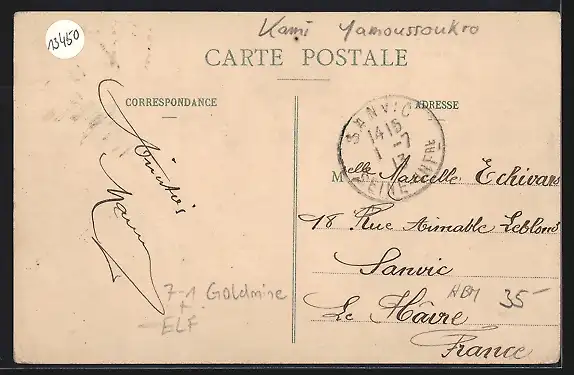 13450
Kami Yamoussoukro
CARTE POSTALE
CORRESPONDANCE
ADRESSE
SANVIC
14 15
1 -7
13
SEINE INFRE
Amitiés
Melle Marcelle Echivard
18 Rue Aimable Leblond
Sanvic
Le Hâvre
France
HBM 35-
7-1 Goldmine
+
ELF